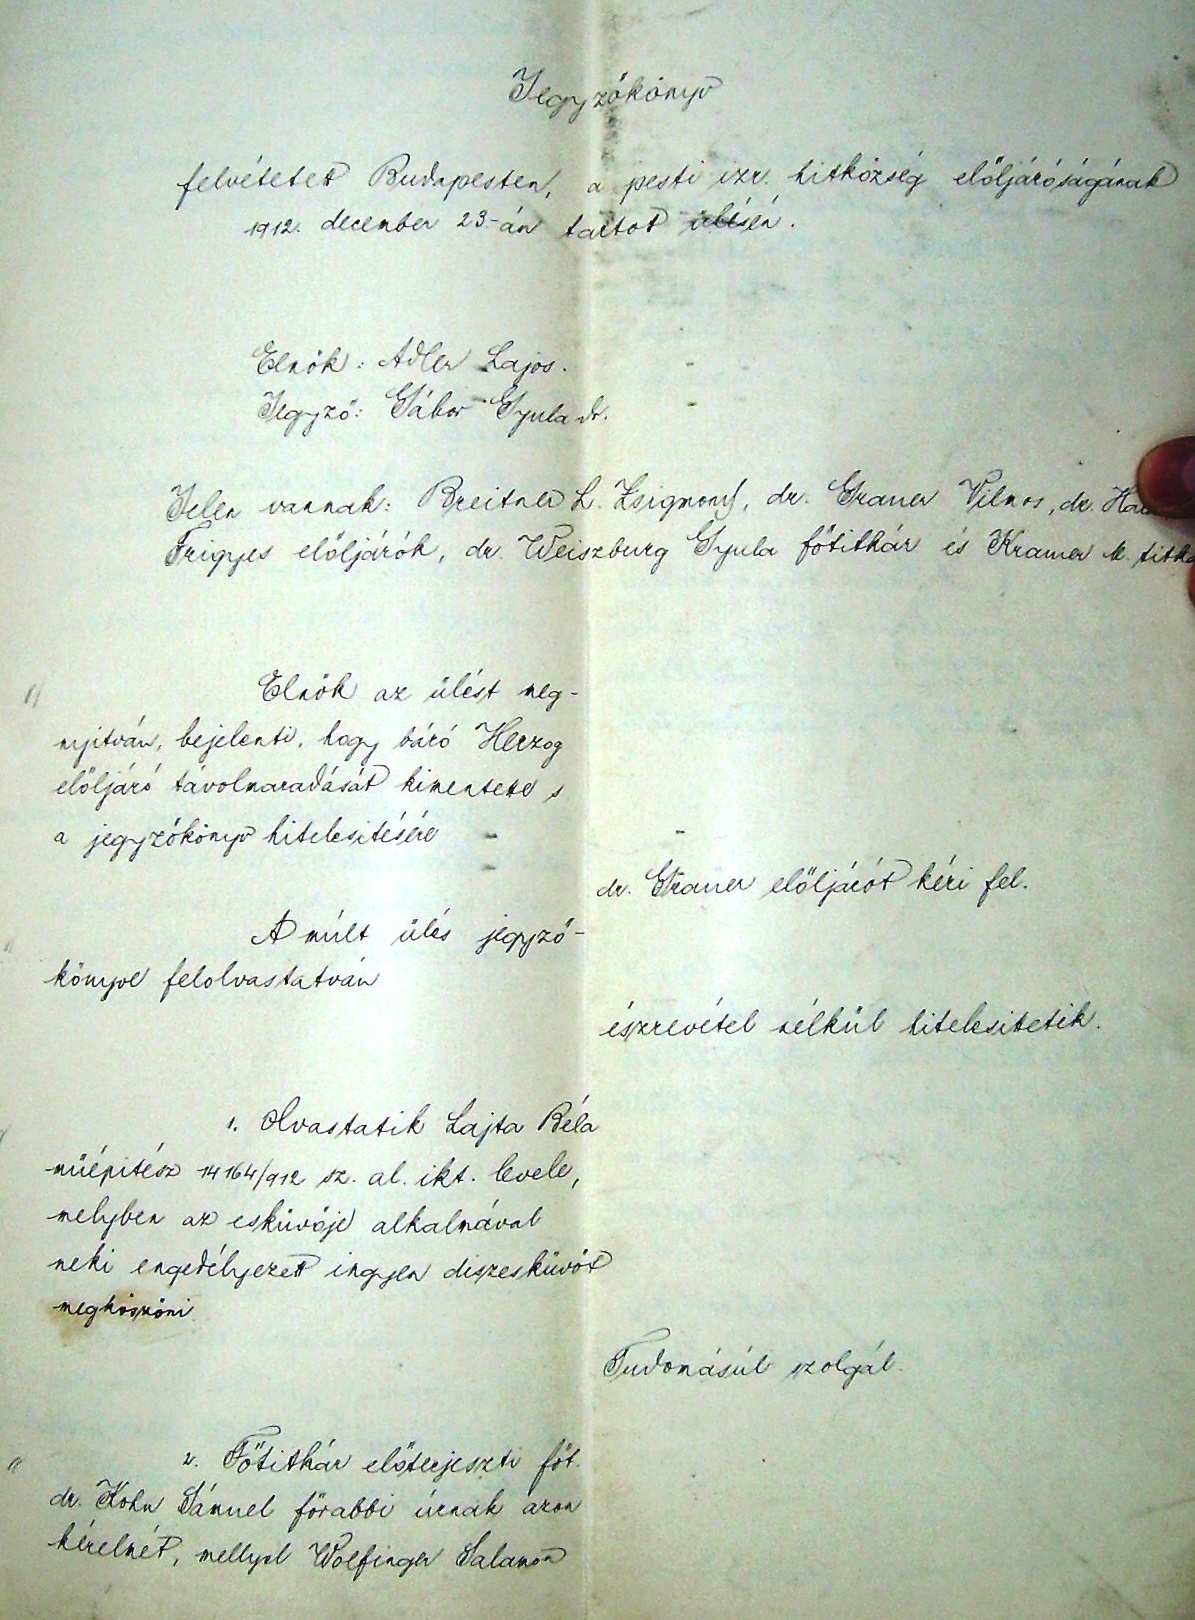 Jegyzőkönyv
felvétetett Budapesten, a pesti izr. hitközség elöljáróságának
1912. december 23-án tartott ülésén.
Elnök: Adler Lajos.
Jegyző: Gábor Gyula dr.
Jelen vannak: Breitner L. Zsigmond, dr. Grauer Vilmos, dr.
Frigyes elöljárók, dr. Weiszburg Gyula főtitkár és Kramer M. titká
Elnök az ülést meg-
nyitván, bejelenti, hogy báró Herzog
elöljáró távolmaradását kimentette s
a jegyzőkönyv hitelesitésére
dr. Grauer elöljárót kéri fel.
A múlt ülés jegyző-
könyve felolvastatván
észrevétel nélkül hitelesitetik.
1. Olvastatik Lajta Béla
műépitész 14164/912 sz. al. ikt. levele,
melyben az esküvője alkalmával
neki engedélyezett ingyen diszesküvőt
megköszöni
Tudomásúl szolgál.
2. Főtitkár előterjeszti főt.
dr. Kohn Sámuel főrabbi úrnak azon
kérelmét, mellyel Wolfinger Salamon